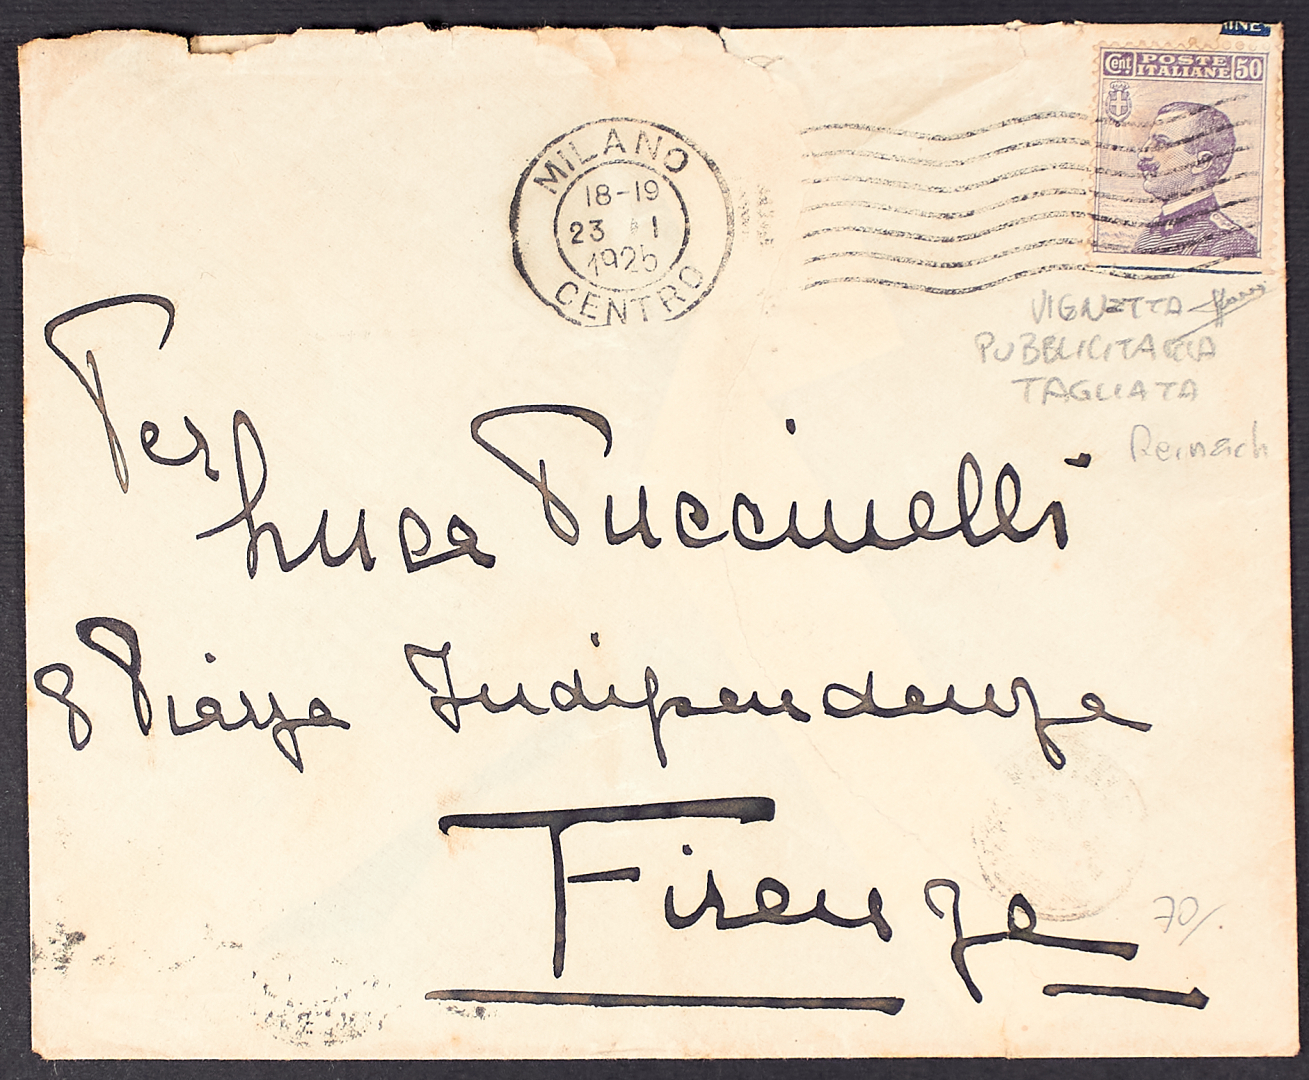 INE
Cent. POSTE ITALIANE 50
MILANO
18-19
23 I
1925
CENTRO
VIGNETTA
PUBBLICITARIA
TAGLIATA
Reinach
Per
Luca Puccinelli
8 Piazza Indipendenza
Firenze
70/